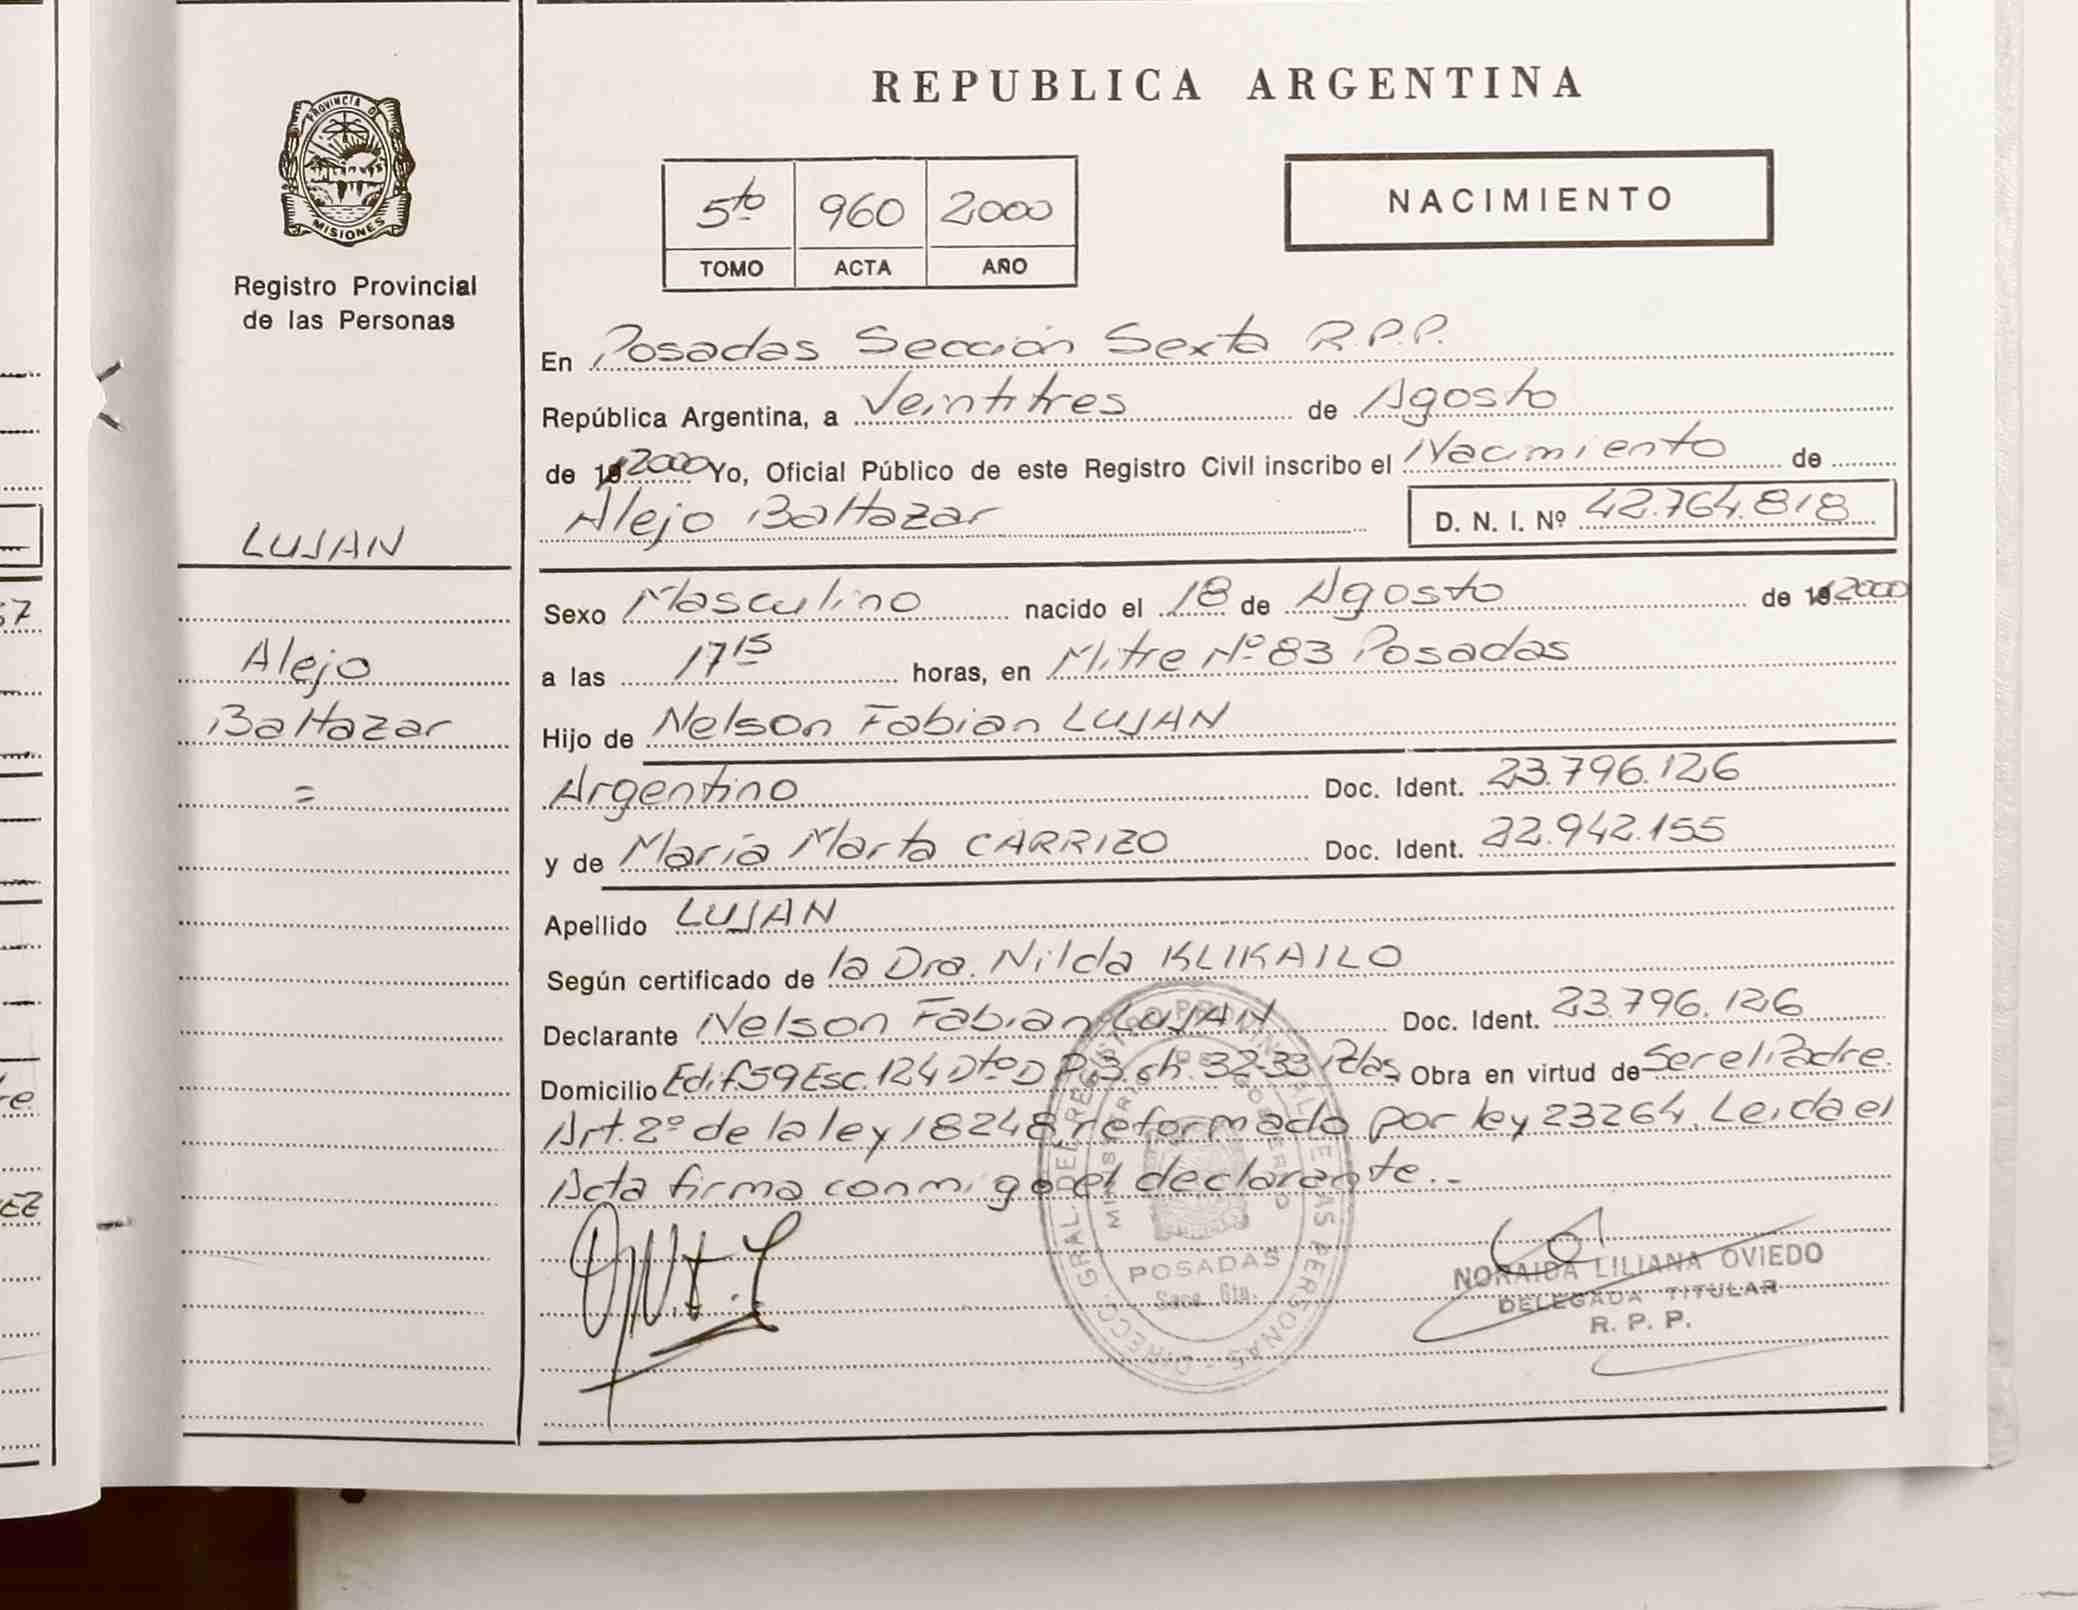 REPUBLICA ARGENTINA
PROVINCIA D
MISIONES
Registro Provincial
de las Personas
5to 960 2000
TOMO ACTA AÑO
NACIMIENTO
En Posadas Sección Sexta R.P.P.
República Argentina, a Veintitres de Agosto
de 19 2000 Yo, Oficial Público de este Registro Civil inscribo el Nacimiento de
Alejo Baltazar D. N. I. Nº 42.764.818
LUJAN
Alejo
Baltazar
=
Sexo Masculino nacido el 18 de Agosto de 19 2000
a las 17 15 horas, en Mitre Nº 83 Posadas
Hijo de Nelson Fabian LUJAN
Argentino Doc. Ident. 23.796.126
y de María Marta CARRIZO Doc. Ident. 22.942.155
Apellido LUJAN
Según certificado de la Dra. Nilda KLIKAILO
Declarante Nelson Fabian LUJAN Doc. Ident. 23.796.126
Domicilio Edif 59 Esc. 124 Dto D P.3. ch. 32-33 Pdas, Obra en virtud de Ser el Padre.
Art. 2º de la ley 18248, reformado por ley 23264. Leida el
Acta firma conmigo el declarante.-
POSADAS
Secc. 6ta.
NORAIDA LILIANA OVIEDO
DELEGADA TITULAR
R. P. P.